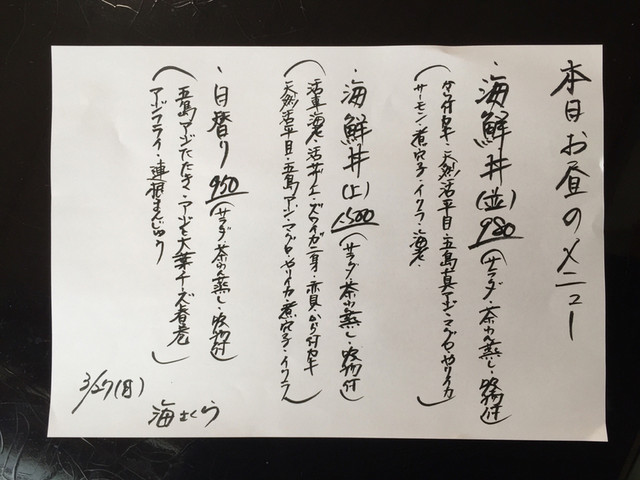 本日お昼のメニュー
・海鮮丼(並) 980(サラダ・茶わん蒸し・吸物付
(から付カキ・天然活平目・五島真アジ・マグロ・ヤリイカ
サーモン・煮穴子・イクラ・海老)
・海鮮丼(上) 1,500(サラダ・茶わん蒸し・吸物付
(活車海老・活ザル上・ズワイガニ身・赤貝・から付カキ
天然活平目・五島アジ・マグロ・ヤリイカ・煮穴子・イクラ)
・日替り 950(サラダ・茶わん蒸し・吸物付
(五島アジたたき・アジと大葉チーズ春巻
アジフライ・蓮根まんじゅう)
3/27(日)
海さくら